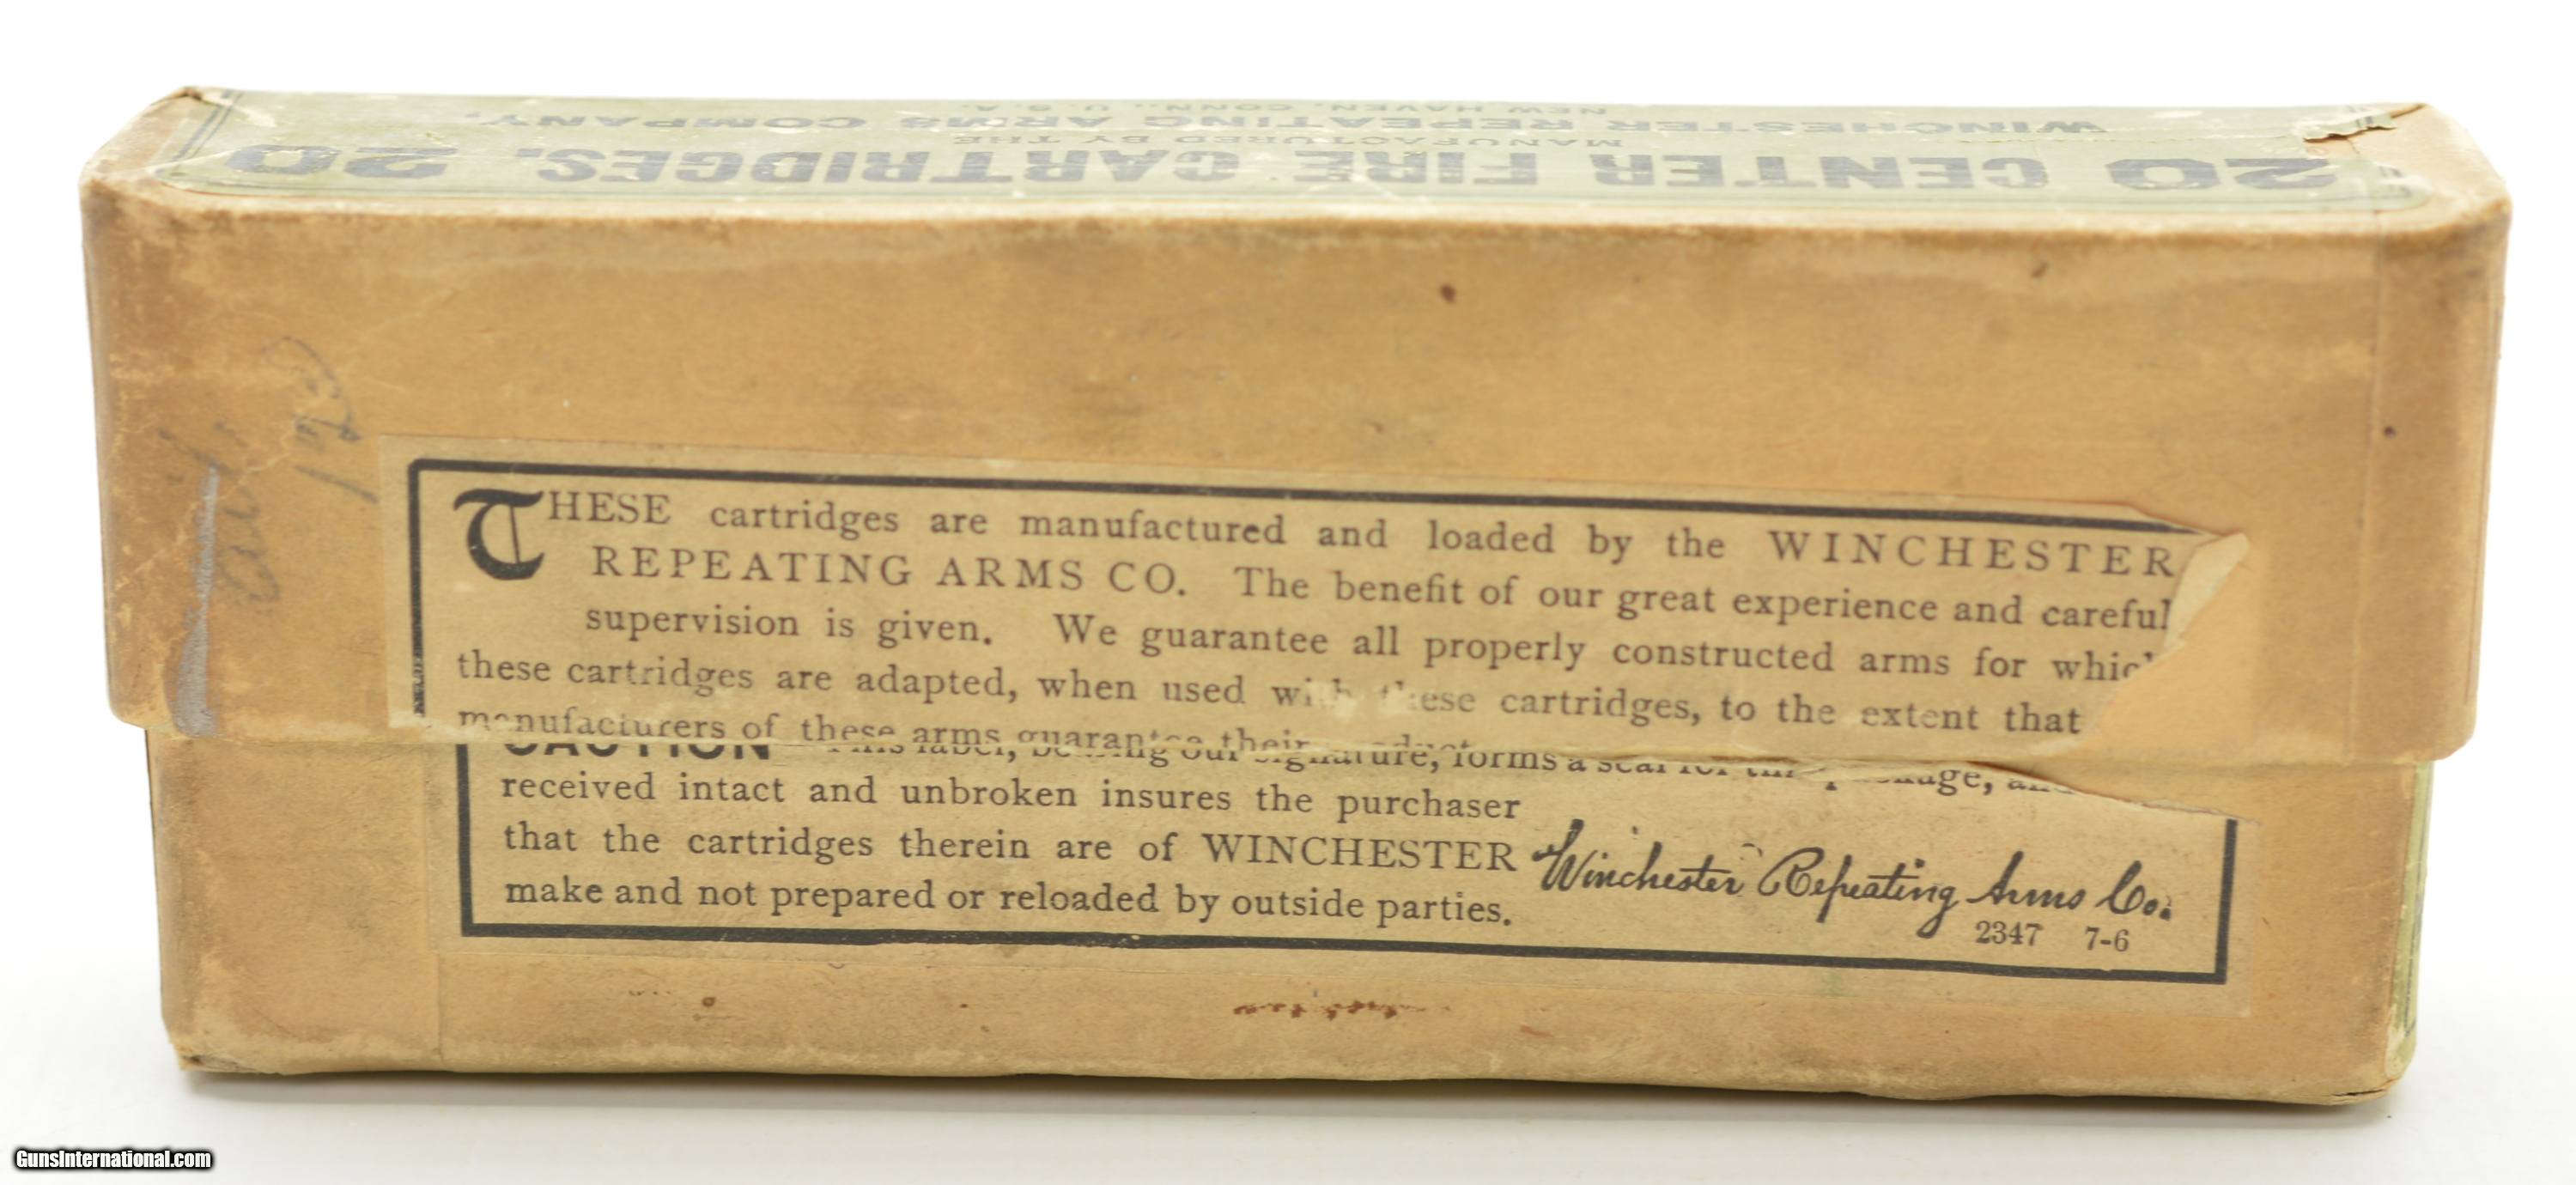 NEW HAVEN, CONN., U.S.A.
WINCHESTER REPEATING ARMS COMPANY.
MANUFACTURED BY THE
20 CENTER FIRE CARTRIDGES. 20
THESE cartridges are manufactured and loaded by the WINCHESTER
REPEATING ARMS CO. The benefit of our great experience and careful
supervision is given. We guarantee all properly constructed arms for
these cartridges are adapted, when used with these cartridges, to the extent that
manufacturers of these arms guarantee their product
CAUTION This label, bearing our signature, forms a seal for this package, and
received intact and unbroken insures the purchaser
that the cartridges therein are of WINCHESTER
make and not prepared or reloaded by outside parties.
Winchester Repeating Arms Co.
2347 7-6
GunsInternational.com